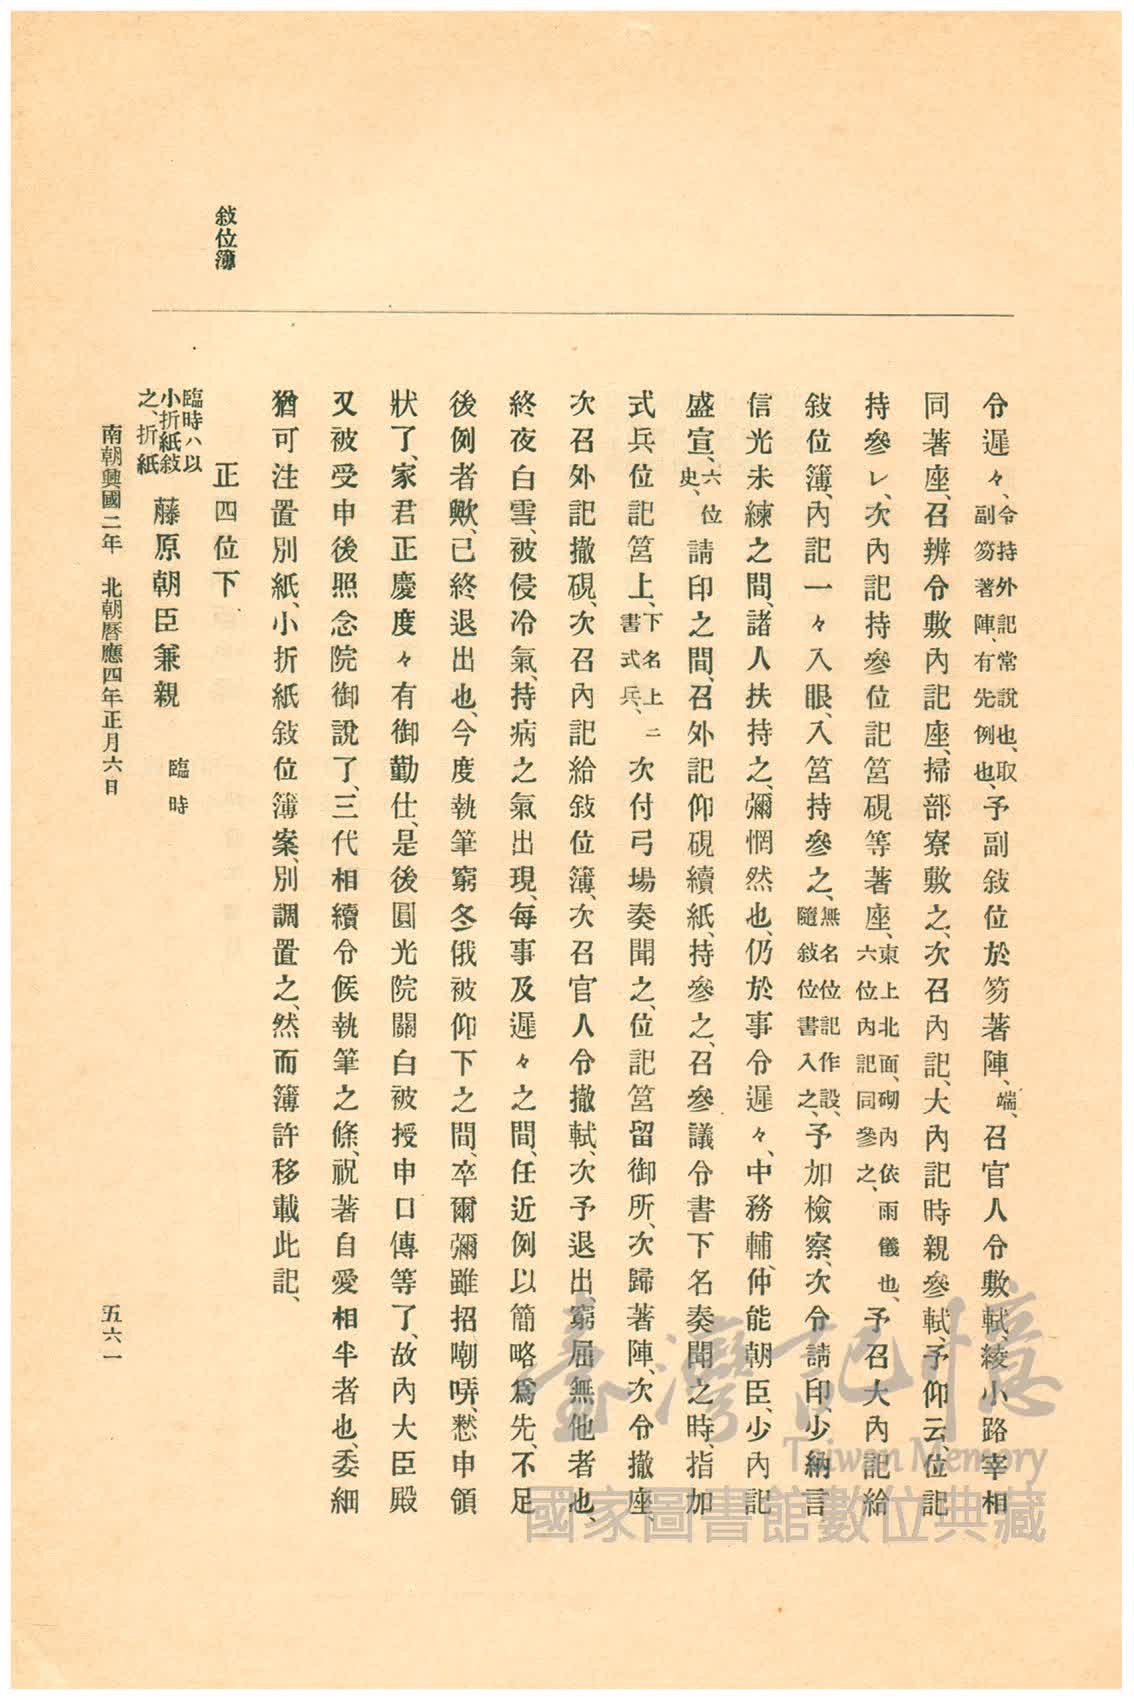 敍位簿
令遲々、令持外記常說也、取副笏著陣、有先例也、予副敍位於笏著陣、端、召官人令敷軾、綾小路宰相
同著座、召辨令敷內記座、掃部寮敷之、次召內記、大內記時親參軾、予仰云、位記
持參レ、次內記持參位記筥硯等著座、東上北面、砌內依雨儀也、六位內記同參之、予召大內記給
敍位簿、內記一々入眼、入筥持參之、無名位記作設、隨敍位書入之、予加檢察、次令請印、少納言
信光未練之間、諸人扶持之、彌惘然也、仍於事令遲々、中務輔、仲能朝臣、少內記
盛宣、六位史、請印之間、召外記仰硯續紙、持參之、召參議令書下名奏聞之時、指加
式兵位記筥上、下名上ニ書式兵、次付弓場奏聞之、位記筥留御所、次歸著陣、次令撤座、
次召外記撤硯、次召內記給敍位簿、次召官人令撤軾、次予退出、窮屈無他者也、
終夜白雪、被侵冷氣、持病之氣出現、每事及遲々之間、任近例以簡略爲先、不足
後例者歟、已終退出也、今度執筆窮冬俄被仰下之間、卒爾彌雖招嘲哢、愁申領
狀了、家君正慶度々有御勤仕、是後圓光院關白被授申口傳等了、故內大臣殿
又被受申後照念院御說了、三代相續令候執筆之條、祝著自愛相半者也、委細
猶可注置別紙、小折紙敍位簿案、別調置之、然而簿許移載此記、
正四位下
臨時ハ以小折紙敍之、折紙
藤原朝臣兼親 臨時
南朝興國二年 北朝曆應四年正月六日
五六一
臺灣記憶
Taiwan Memory
國家圖書館數位典藏